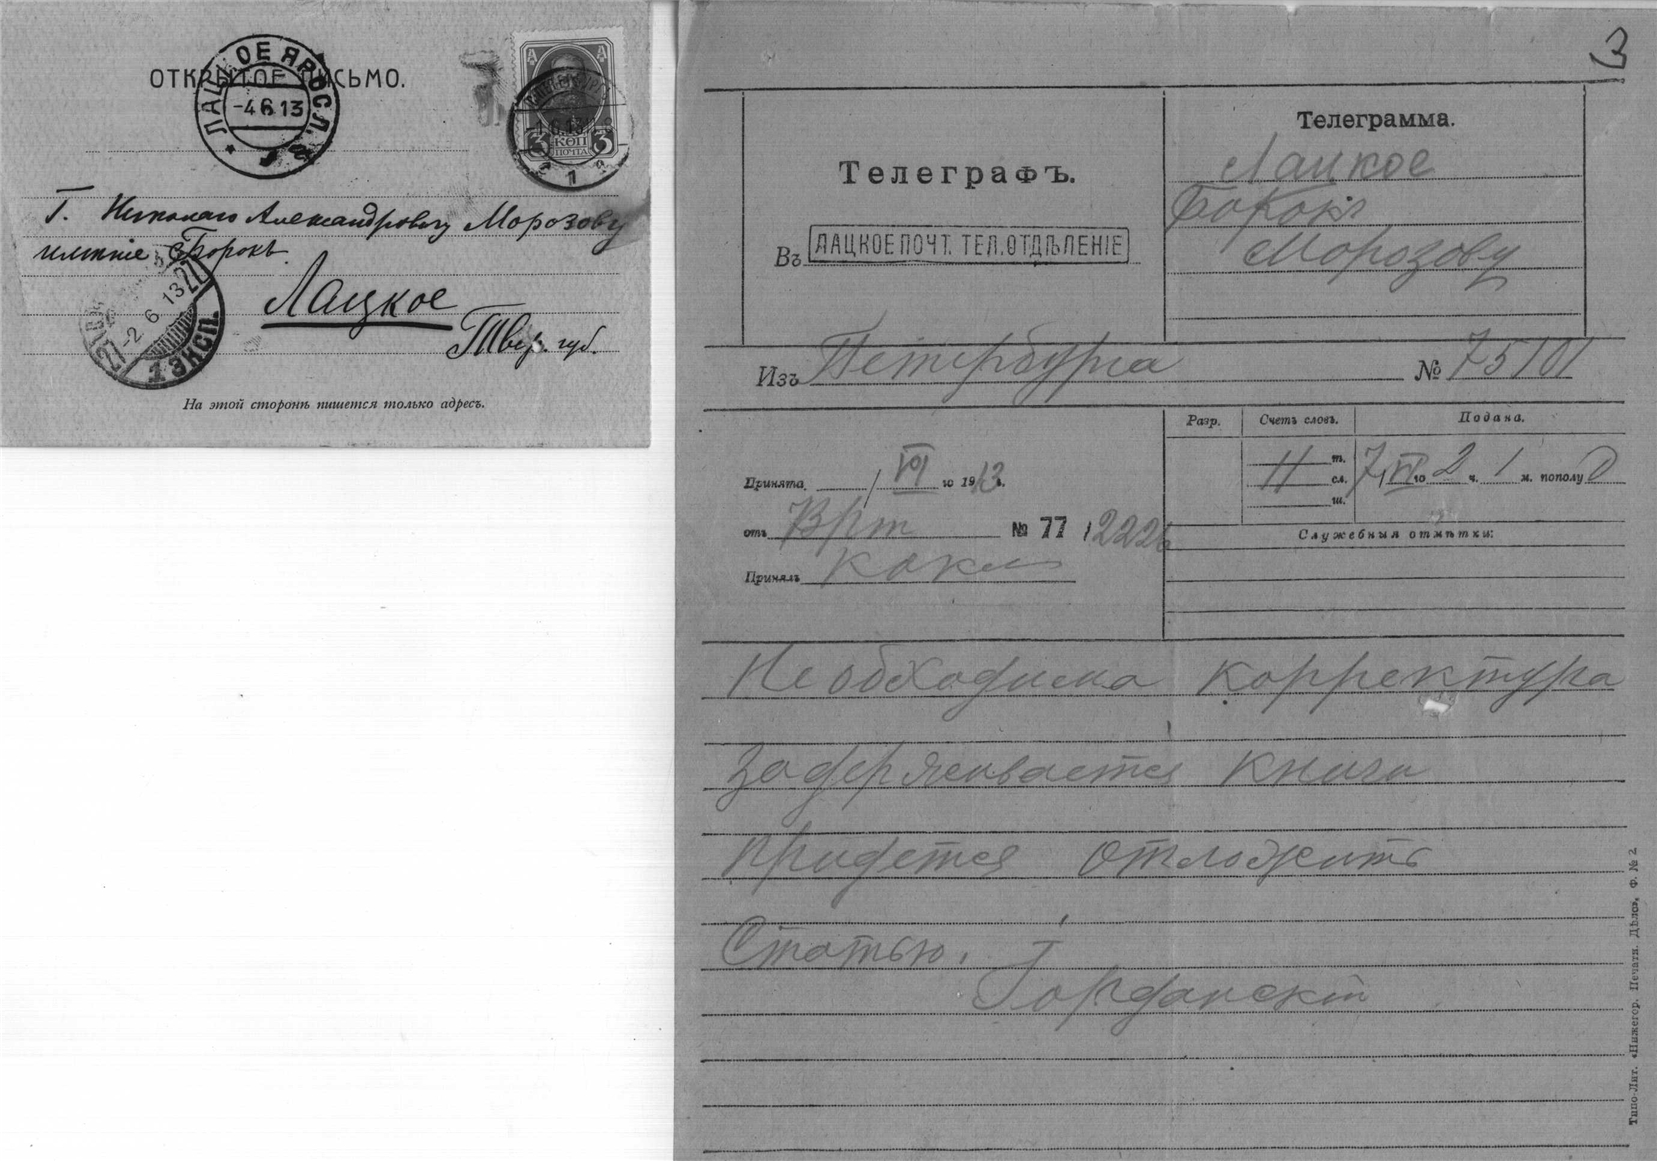 ОТКРЫТОЕ ПИСЬМО.
ЛАЦКОЕ ЯРОСЛ.
-4 6 13
3 КОП 3
ПОЧТА
1
Г. Николаю Александровичу Морозову
имѣніе Борокъ.
Лацкое
Твер. губ.
-2 6 13
1 ЭКСП.
На этой сторонѣ пишется только адресъ.
Телеграфъ.
Въ ЛАЦКОЕ ПОЧТ. ТЕЛ. ОТДѢЛЕНІЕ
Телеграмма.
Лацкое
Морозову
Изъ Петербурга № 75101
Принята / VI го 1913 г.
отъ № 77 / 222
Принялъ
Разр. Счетъ словъ. Подана.
т.
11 сл. 7/VI го 2 ч. 1 м. пополу д
ш.
Служебныя отмѣтки:
Необходима корректура
задерживается книга
придется отложить
статью.
Іорданскій
Типо-Лит. «Нижегор. Печатн. Дѣло», Ф. № 2